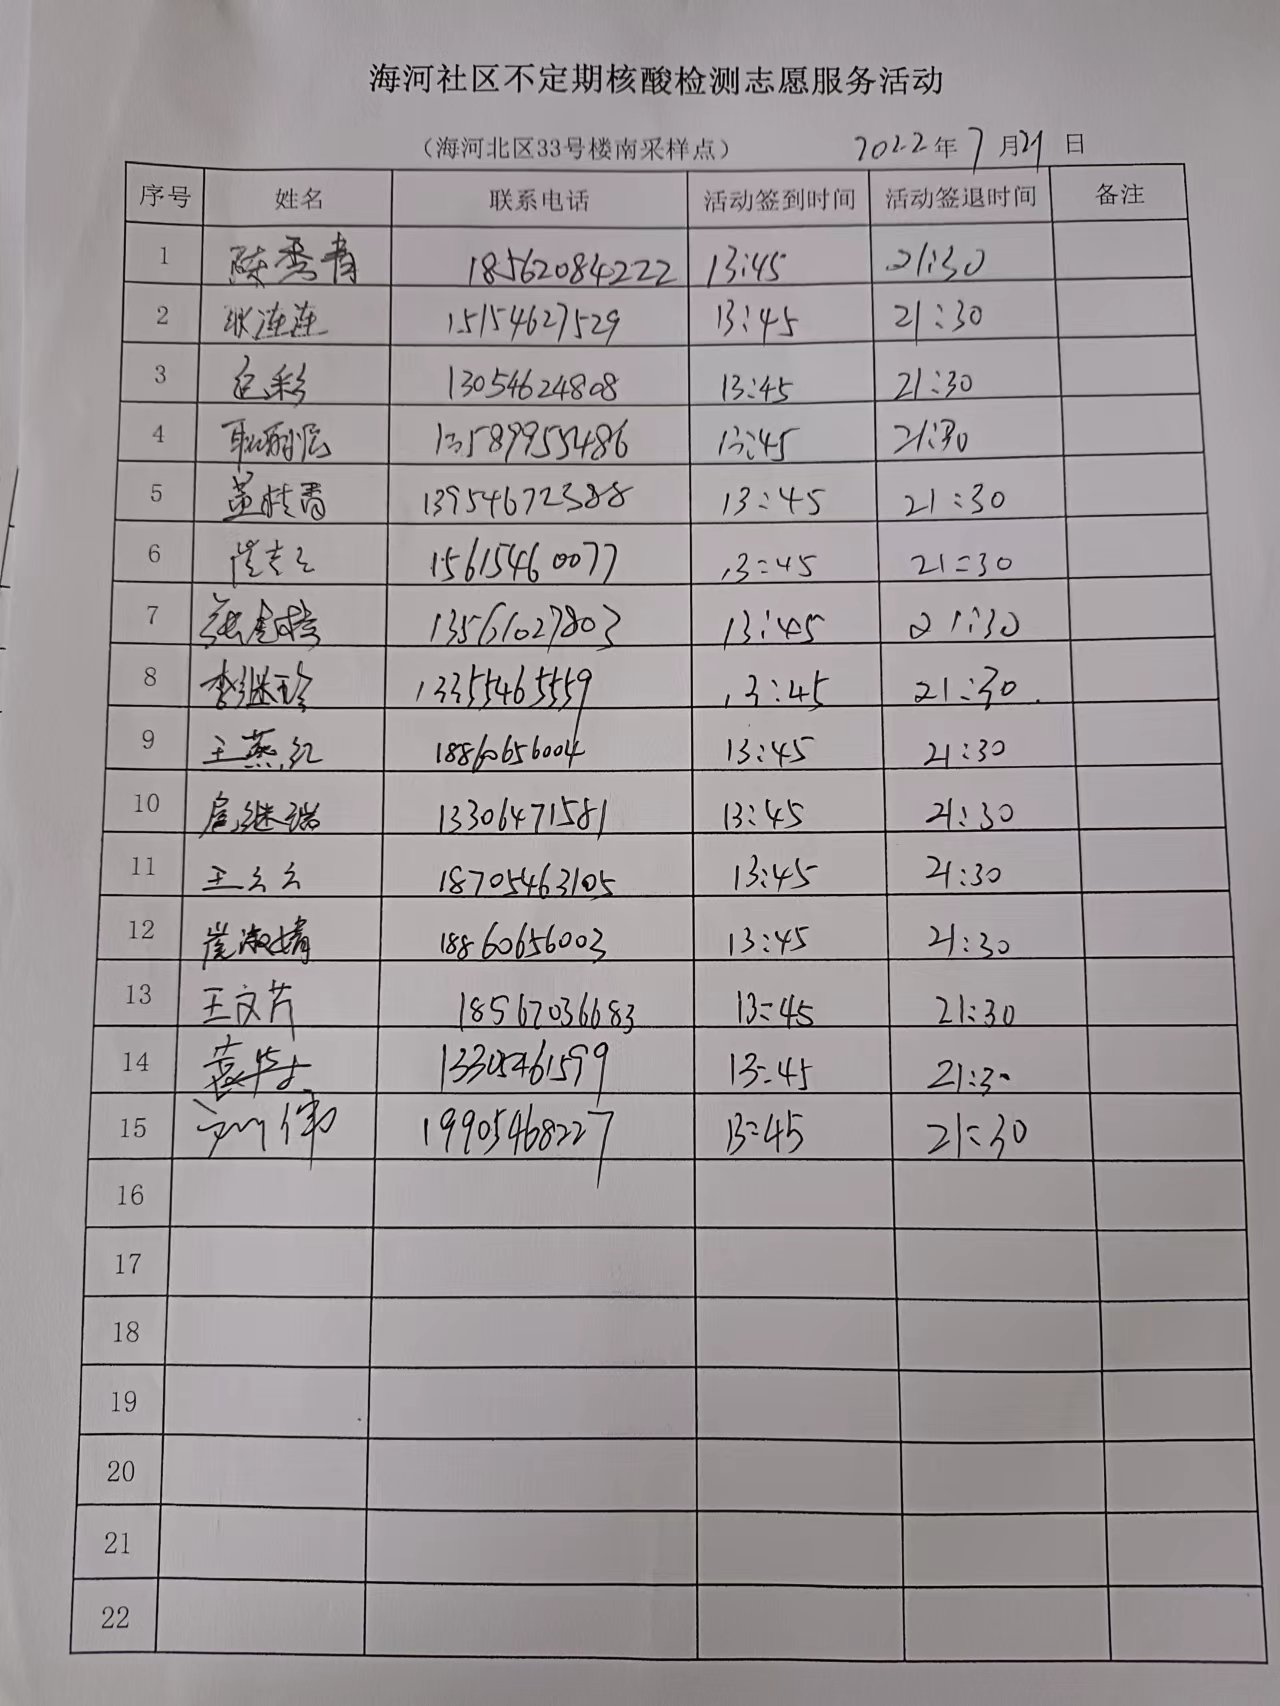 海河社区不定期核酸检测志愿服务活动
（海河北区33号楼南采样点） 2022年7月21日
序号 姓名 联系电话 活动签到时间 活动签退时间 备注
1 陈秀青 18562084222 13:45 21:30
2 耿连莲 15154627529 13:45 21:30
3 13054624808 13:45 21:30
4 13589955486 13:45 21:30
5 董桂香 13954672388 13:45 21:30
6 15615460077 13:45 21:30
7 13561027803 13:45 21:30
8 李继玲 13355465559 13:45 21:30.
9 王燕红 18860656004 13:45 21:30
10 扈继瑞 13306471581 13:45 21:30
11 王云云 18705463105 13:45 21:30
12 崔淑婧 18860656003 13:45 21:30
13 王文芹 18567036683 13:45 21:30
14 13:45 21:30
15 刘伟 19905468227 13:45 21:30
16
17
18
19
20
21
22